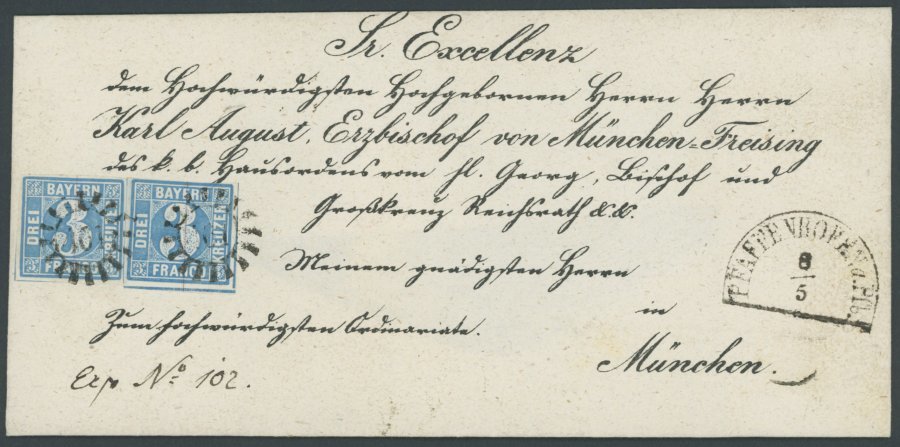 Sr. Excellenz
dem Hochwürdigsten Hochgebornen Herrn Herrn
Karl August, Erzbischof von München-Freising
des k. b. Hausordens vom hl. Georg, Bischof und
Großkreuz Reichsrath &.&.
Meinem gnädigsten Herrn
in
Zum hochwürdigsten Ordinariate.
München.
Exp No 102.
BAYERN
DREI
3
FRANCO
BAYERN
DREI
3
KREUZER
FRANCO
PFAFFENHOFEN a. Plm.
8
5